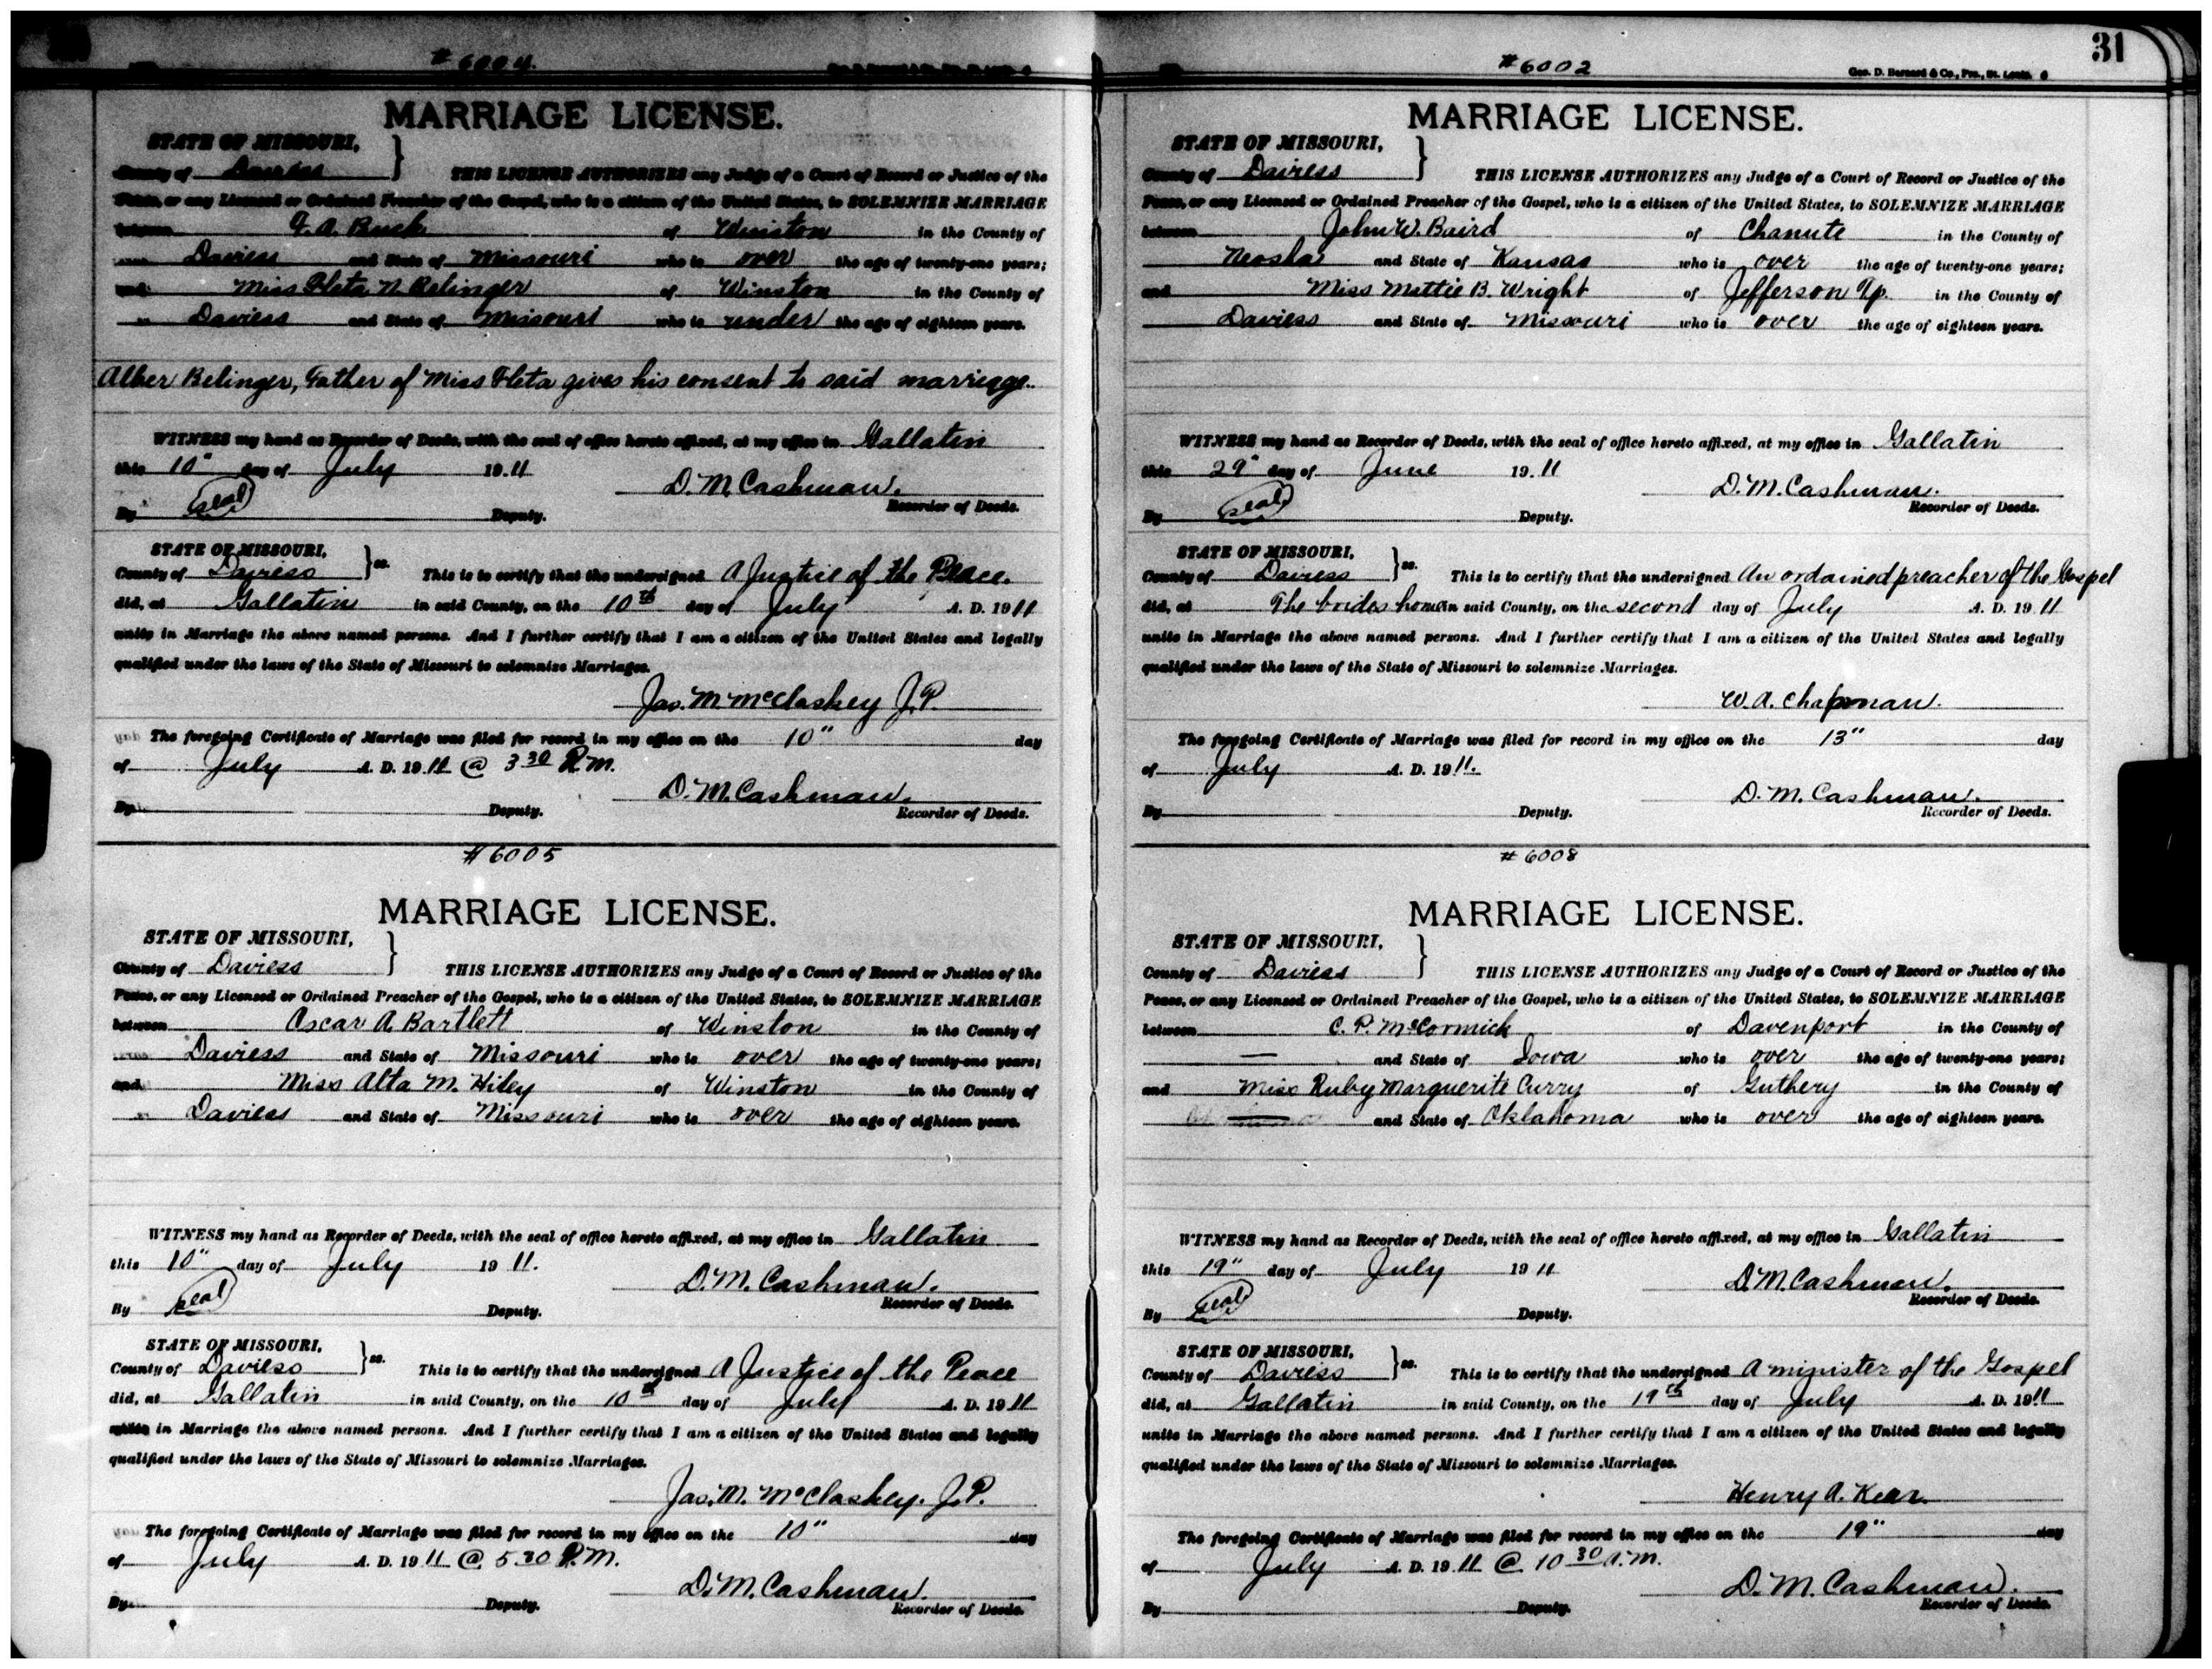 # 6004.
MARRIAGE LICENSE.
STATE OF MISSOURI,
County of Daviess THIS LICENSE AUTHORIZES any Judge of a Court of Record or Justice of the
Peace, or any Licensed or Ordained Preacher of the Gospel, who is a citizen of the United States, to SOLEMNIZE MARRIAGE
between A. Buck of Winston in the County of
Daviess and State of Missouri who is over the age of twenty-one years;
and Miss Fleta N. Belinger of Winston in the County of
Daviess and State of Missouri who is under the age of eighteen years.
Alber Belinger, Father of Miss Fleta gives his consent to said marriage.
WITNESS my hand as Recorder of Deeds, with the seal of office hereto affixed, at my office in Gallatin
this 10" day of July 19 11
D. M. Cashman.
By seal Deputy. Recorder of Deeds.
STATE OF MISSOURI,
County of Daviess ss. This is to certify that the undersigned A Justice of the Peace.
did, at Gallatin in said County, on the 10th day of July A. D. 19 11
unite in Marriage the above named persons. And I further certify that I am a citizen of the United States and legally
qualified under the laws of the State of Missouri to solemnize Marriages.
Jas. M. McClaskey J.P.
The foregoing Certificate of Marriage was filed for record in my office on the 10" day
of July A. D. 19 11 @ 3 30 P.M.
D. M. Cashman.
By Deputy. Recorder of Deeds.
# 6005
MARRIAGE LICENSE.
STATE OF MISSOURI,
County of Daviess THIS LICENSE AUTHORIZES any Judge of a Court of Record or Justice of the
Peace, or any Licensed or Ordained Preacher of the Gospel, who is a citizen of the United States, to SOLEMNIZE MARRIAGE
between Oscar A. Bartlett of Winston in the County of
Daviess and State of Missouri who is over the age of twenty-one years;
and Miss Alta M. Hiley of Winston in the County of
Daviess and State of Missouri who is over the age of eighteen years.
WITNESS my hand as Recorder of Deeds, with the seal of office hereto affixed, at my office in Gallatin
this 10" day of July 19 11.
D. M. Cashman.
By seal Deputy. Recorder of Deeds.
STATE OF MISSOURI,
County of Daviess ss. This is to certify that the undersigned A Justice of the Peace
did, at Gallatin in said County, on the 10th day of July A. D. 19 11
unite in Marriage the above named persons. And I further certify that I am a citizen of the United States and legally
qualified under the laws of the State of Missouri to solemnize Marriages.
Jas. M. McClaskey. J.P.
The foregoing Certificate of Marriage was filed for record in my office on the 10" day
of July A. D. 19 11 @ 5 30 P.M.
D. M. Cashman.
By Deputy. Recorder of Deeds.
31
# 6002
Geo. D. Barnard & Co., Pro., St. Louis. 6
MARRIAGE LICENSE.
STATE OF MISSOURI,
County of Daviess THIS LICENSE AUTHORIZES any Judge of a Court of Record or Justice of the
Peace, or any Licensed or Ordained Preacher of the Gospel, who is a citizen of the United States, to SOLEMNIZE MARRIAGE
between John W. Baird of Chanute in the County of
Neosho and State of Kansas who is over the age of twenty-one years;
and Miss Mattie B. Wright of Jefferson Tp. in the County of
Daviess and State of Missouri who is over the age of eighteen years.
WITNESS my hand as Recorder of Deeds, with the seal of office hereto affixed, at my office in Gallatin
this 29" day of June 19 11
D. M. Cashman.
By seal Deputy. Recorder of Deeds.
STATE OF MISSOURI,
County of Daviess ss. This is to certify that the undersigned An ordained preacher of the Gospel
did, at The brides home in said County, on the second day of July A. D. 19 11
unite in Marriage the above named persons. And I further certify that I am a citizen of the United States and legally
qualified under the laws of the State of Missouri to solemnize Marriages.
W. A. Chapman.
The foregoing Certificate of Marriage was filed for record in my office on the 13" day
of July A. D. 19 11.
D. M. Cashman.
By Deputy. Recorder of Deeds.
# 6008
MARRIAGE LICENSE.
STATE OF MISSOURI,
County of Daviess THIS LICENSE AUTHORIZES any Judge of a Court of Record or Justice of the
Peace, or any Licensed or Ordained Preacher of the Gospel, who is a citizen of the United States, to SOLEMNIZE MARRIAGE
between C. P. McCormick of Davenport in the County of
— and State of Iowa who is over the age of twenty-one years;
and Miss Ruby Marguerite Curry of Guthery in the County of
and State of Oklahoma who is over the age of eighteen years.
WITNESS my hand as Recorder of Deeds, with the seal of office hereto affixed, at my office in Gallatin
this 19" day of July 19 11
D. M. Cashman.
By seal Deputy. Recorder of Deeds.
STATE OF MISSOURI,
County of Daviess ss. This is to certify that the undersigned A minister of the Gospel
did, at Gallatin in said County, on the 19th day of July A. D. 19 11
unite in Marriage the above named persons. And I further certify that I am a citizen of the United States and legally
qualified under the laws of the State of Missouri to solemnize Marriages.
Henry A. Kear.
The foregoing Certificate of Marriage was filed for record in my office on the 19" day
of July A. D. 19 11 @ 10 30 A.M.
D. M. Cashman.
By Deputy. Recorder of Deeds.